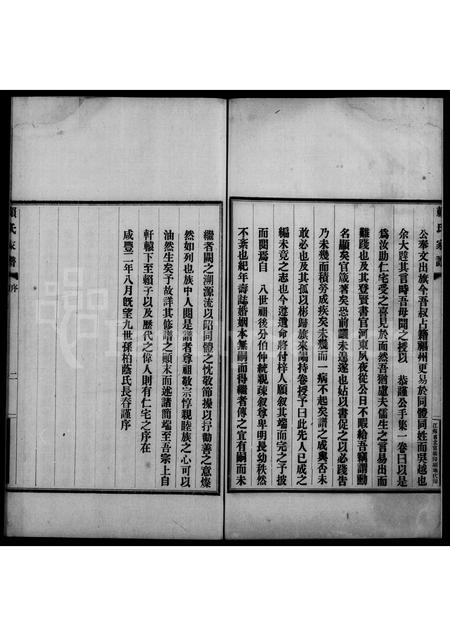 賴氏家譜
公奉文出旗今吾叔占籍顧州更易於同體同姓而吳越也
余大韙其言時吾母聞之經以 恭謹公手集一卷曰以是
為汝助仁宅受之喜見於面然吾猶慮夫儒生之言易出而
難踐也及其登賢書官河東夙夜從公日不暇給吾竊謂勳
名顯矣官箴著矣恐前讓未遑遂也姑以書促之以必踐告
乃未幾而積勞成疾矣未幾而一病不起矣譜之成與否未
敢必也及其孤以彬歸旗來謁持卷授予曰此先人已成之
編未竟之志也今遵遺命將付梓人願敘其端而完之予披
而閱焉自 八世祖後分伯仲統親疎敘尊卑明長幼秩然
不紊也紀年壽誌婚姻本無嗣而得繼者傳之宜有嗣而未
繼者闕之溯源流以昭同體之忱敬節操以抒勸善之意燦
然如列也族中人閱是譜者尊祖敬宗惇親睦族之心可以
油然生矣予故詳其修譜之顛末而述諸簡端至吾宗上自
軒轅下至賴子以及歷代之偉人則有仁宅之序在
咸豐二年八月既望九世孫柏蔭氏長春謹序
賴氏家譜
序
二